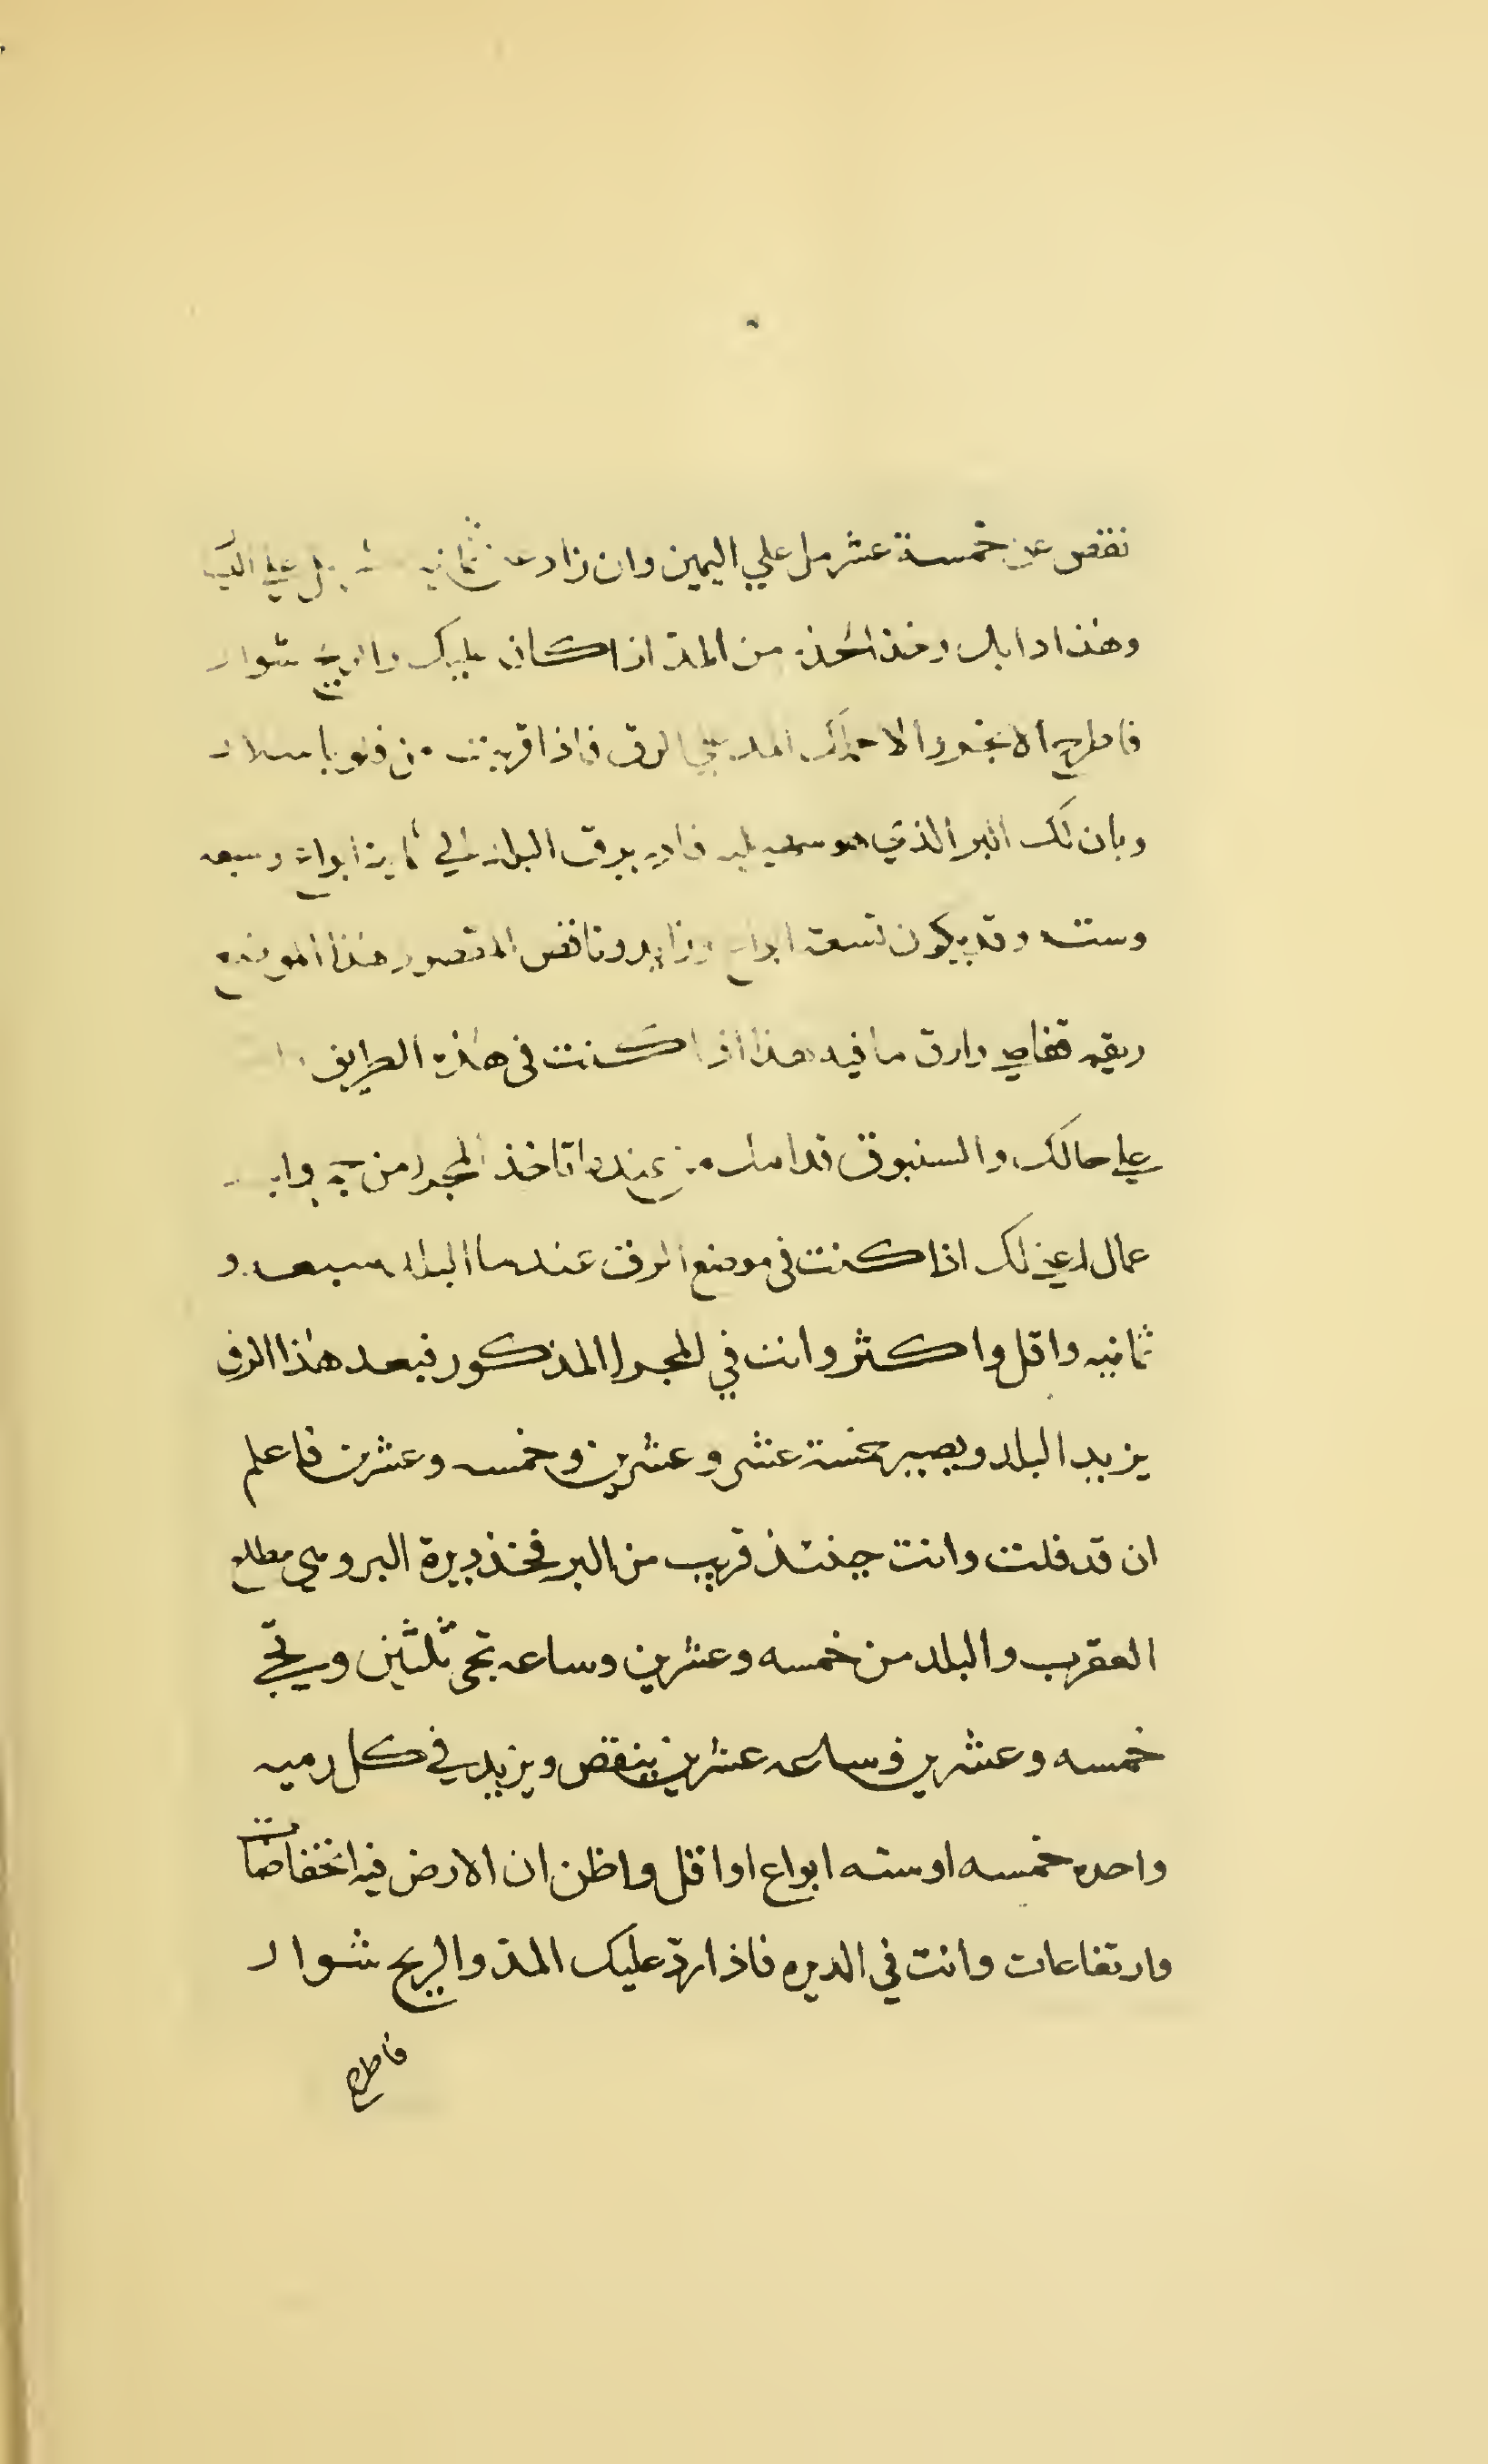 نقص عن خمسة عشر مل علي اليمين وان زاد عن ثمانيه مل علي
وهذا دابك وخذ الحذر من المد اذا كان عليك والريح شوار
فاطرح الانجر والا حملك المد علي الرق فاذا قربت من فلوباسلار
وبان لك البر الذي هو فاديه برق البلد الي ثمانية ابواع وسبعه
وسته وقد يكون تسعة ابواع وزايد وناقص المقصود هذا الموضع
رقيه وارق ما فيه هذا اذا كنت في هذه الطرايق
علي حالك والسنبوق قدامك من عنده تاخذ المجرا من
عمال اعني لك اذا كنت في موضع الرق عندما البلد سبعه و
ثمانيه واقل واكثر وانت في المجرا المذكور فبعد هذا الرق
يزيد البلد ويصير خمسة عشر وعشرين وخمسه وعشرين فاعلم
ان قد فلت وانت حينئذ قريب من البر فخذ ديرة البر وهي مطلع
العقرب والبلد من خمسه وعشرين وساعه تجي ثلثين وتجي
خمسه وعشرين وساعه عشرين ينقص ويزيد في كل رميه
واحده خمسه او سته ابواع او اقل واظن ان الارض فيه انخفاضات
وارتفاعات وانت في الديره فاذا ارد عليك المد والريح شوار
فاطرح